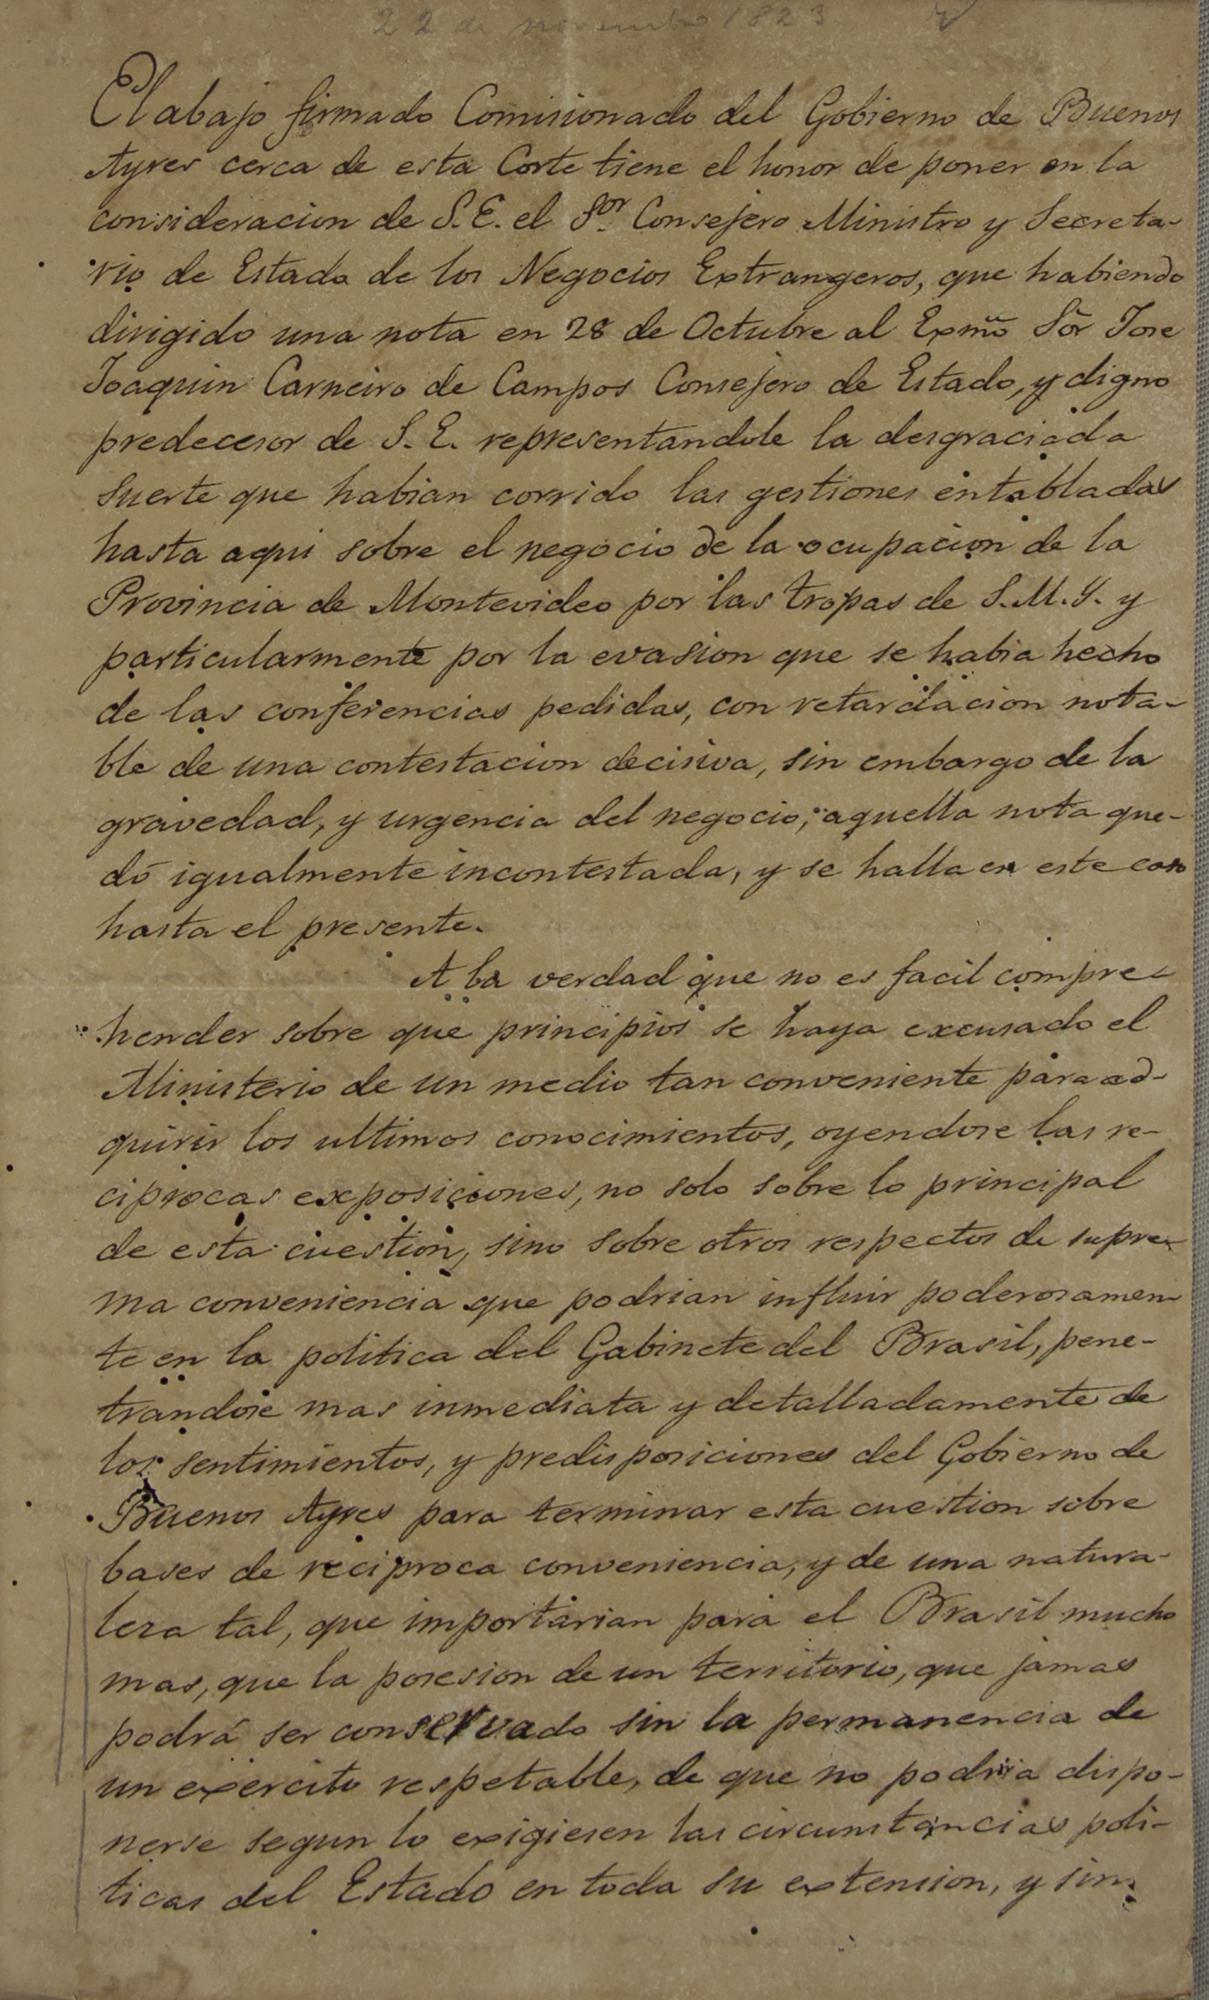 22 de novembro 1823
El abajo firmado Comisionado del Gobierno de Buenos
Ayres cerca de esta Corte tiene el honor de poner en la
consideracion de S.E. el Sor. Consejero Ministro y Secreta-
rio de Estado de los Negocios Extrangeros, que habiendo
dirigido una nota en 28 de Octubre al Exmo Sõr Jose
Joaquin Carneiro de Campos Consejero de Estado, y digno
predecesor de S. E. representandole la desgraciada
suerte que habian corrido las gestiones entabladas
hasta aqui sobre el negocio de la ocupacion de la
Provincia de Montevideo por las tropas de S.M.Y. y
particularmente por la evasion que se habia hecho
de las conferencias pedidas, con retardacion nota-
ble de una contestacion decisiva, sin embargo de la
gravedad, y urgencia del negocio; aquella nota que-
dó igualmente incontestada, y se halla en este caso
hasta el presente.
A la verdad que no es facil compre-
hender sobre que principios se haya excusado el
Ministerio de un medio tan conveniente para ad-
quirir los ultimos conocimientos, oyendose las re-
ciprocas exposiciones, no solo sobre lo principal
de esta cuestion, sino sobre otros respectos de supre-
ma conveniencia que podrian influir poderosamen-
te en la politica del Gabinete del Brasil, pene-
trandose mas inmediata y detalladamente de
los sentimientos, y predisposiciones del Gobierno de
Buenos Ayres para terminar esta cuestion sobre
bases de reciproca conveniencia, y de una natura-
leza tal, que importarian para el Brasil mucho
mas, que la posesion de un territorio, que jamas
podrá ser conservado sin la permanencia de
un exercito respetable, de que no podria dispo-
nerse segun lo exigiesen las circunstancias poli-
ticas del Estado en toda su extension, y sin